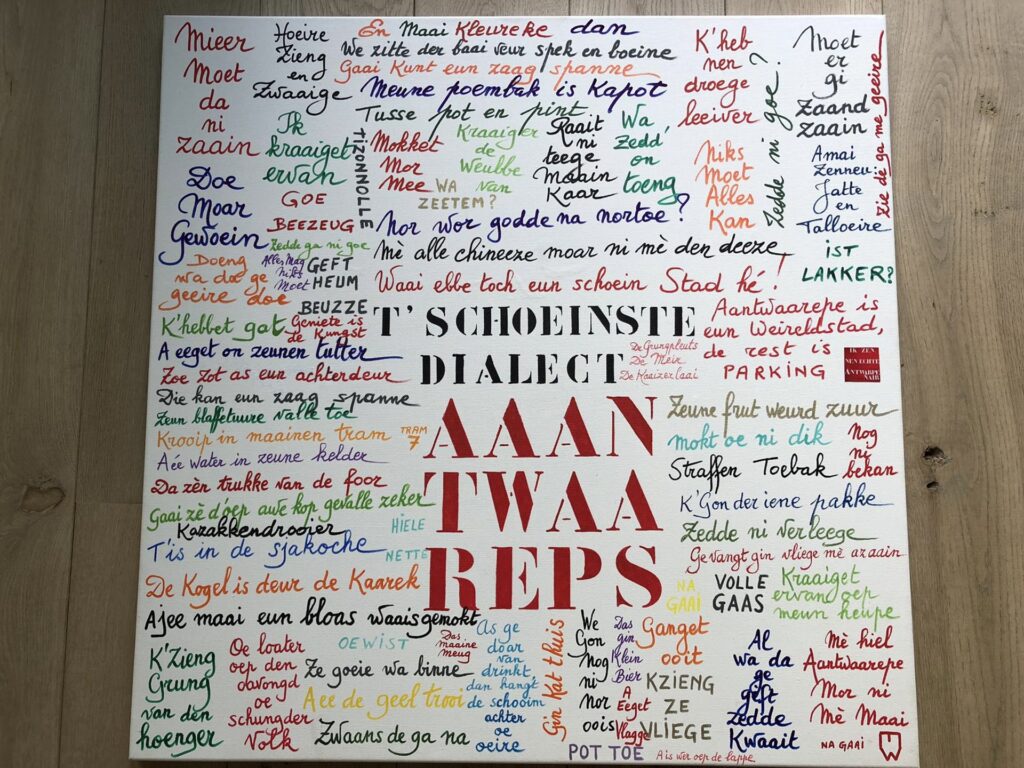 Mieer
Moet
da
ni
zaain
Hoeire
Zieng
en
Zwaaige
En Maai Kleureke dan
We zitte der baai veur spek en boeine
Gaai Kunt eun zaag spanne
Meune poembak is Kapot
Tusse pot en pint
K'heb
nen
droege
leeiver
Zedde ni goe?
Moet
er
gi
Zaand
zaain
zie dè ga me geeire
Ik
kraaiget
ervan
TIZONNOLLE
Mokket
Mor
Mee
Kraaiger
de
Weubbe
van
WA
ZEETEM?
Raait
ni
teege
Maain
Kaar
Wa
Zedd
on
toeng
Niks
Moet
Alles
Kan
Amai
Zenneu
Jatte
en
Talloeire
Doe
Moar
Gewoein
GOE
BEEZEUG
Nor wor godde na nortoe?
Zedde ga ni goe
Mè alle chineeze moar ni mè den deeze
IST
LAKKER?
Doeng
wa dat ge
geeire doe
Alles Mag
niks
Moet
GEFT
HEUM
BEUZZE
Waai ebbe toch eun schoein Stad hé!
K'hebbet gat
Geniete is
de Kungst
T'SCHOEINSTE
DIALECT
AAAN
TWAA
REPS
De Grungpleuts
De Meir
De Kaaizerlaai
Aantwaarepe is
eun Weireldstad,
de rest is
PARKING
IK ZEN
NEN ECHTE
ANTWARPE
NAHR
A eeget on zeunen tutter
Zoe Zot as eun achterdeur
Die kan eun zaag spanne
Zeun blaffetuure valle toe
Krooip in maainen tram
TRAM
7
Aée water in zeune kelder
Da zèn trukke van de foor
Gaai zè d'oep auwe kop gevalle zeker
Kazakkendrooier
HIELE
T'is in de sjakoche
NETTE
De Kogel is deur de Kaarek
Zeune frut weurd zuur
mokt oe ni dik
Nog
ni
bekan
Straffen Toebak
K'Gon der iene pakke
Zedde ni verleege
Ge vangt gin vliege mè azaain
NA
GAAI
VOLLE
GAAS
Kraaiget
ervan oep
meun heupe
Ajee maai eun bloas waaisgemokt
K'Zieng
Grung
van dèn
hoenger
Oe loater
oep den
oavongd
oe
schungder
Volk
OEWIST
Das
maaine
meug
Ze goeie wa binne
Aee de geel trooi
Zwaans de ga na
As ge
doar
van
drinkt,
dan hangt
de schooim
achter
oe
oeire
Gin Kat thuis
We
Gon
nog
ni
nor
oois
Das
gin
Klein
Bier
A
Eeget
Vlagge
Ganget
ooit
KZIENG
ZE
VLIEGE
POT TOE
A is wer oep de lappe
Al
wa da
ge
geft
zedde
Kwaait
Mè hiel
Aantwaarepe
Mor ni
Mè Maai
NA GAAI